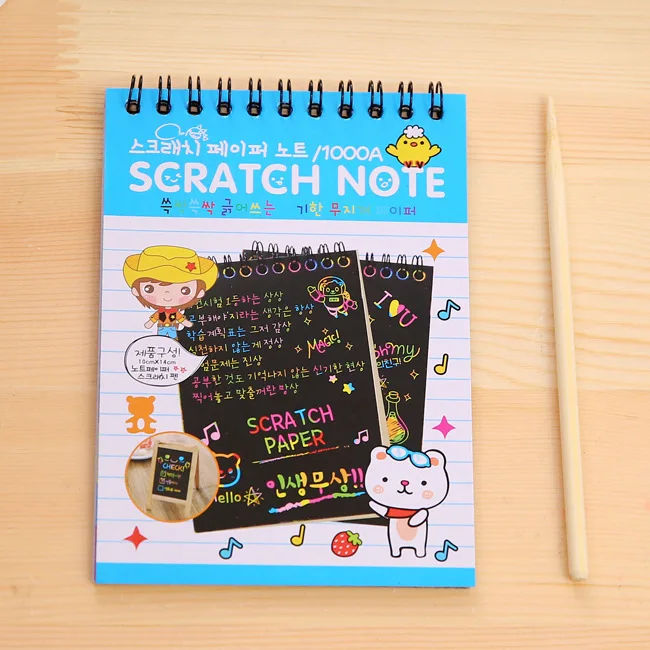 스크래치 페이퍼 노트 /1000A
SCRATCH NOTE
쓱싹쓱싹 긁어쓰는 기한 무지 페이퍼
시험 1등하는 상상
공부해야지라는 생각은 항상
학습계획표는 그저 감상
실천하지 않는게 정상
시험문제는 진상
공부한 것도 기억나지 않는 신기한 현상
찍어놓고 맞출꺼란 망상
Magic!
I U
oh my
제품구성!
10cmX14cm
노트페이퍼
스크래치 펜
SCRATCH
PAPER
CHECK!
Hello
인생무상!!